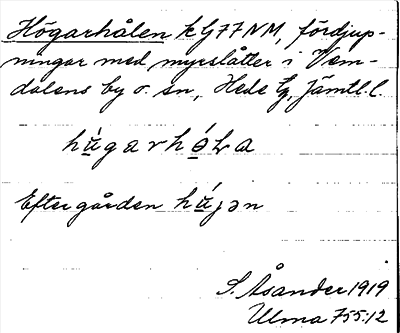 Högarhålen k G77NM, fördjup-
ningar med myrslåtter i Vem-
dalens by o. sn, Hede tg, Jämtl. l.
húgarhóla
Efter gården hújən
S. Åsander 1919
Ulma 755:12